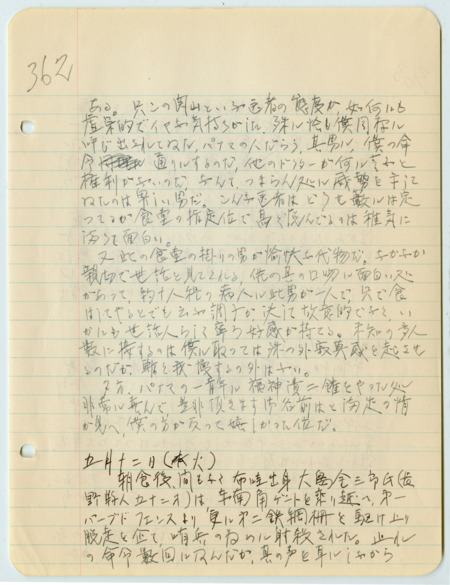 362
ある。只この関山といふ医者の態度が、如何にも
産業的でイヤな気持ちがした。殊に怜も僕同様に
呼び出されてゐた、パナマの人だらう、其男に、僕の命
令 通りにするのだ、他のドクターが何と云ふと
権利がないのだ、なんて、つまらん処に威勢を示して
ゐたのは卑しい男だ。こんな医者はどうも敵には定
つてるが食堂の指定位で高く構んでるのは稚気に
満ちて面白い。
又此の食堂の掛りの男が愉快な代物だ。なかなか
親切で世話を見てくれる、他の其の口物に面白い処
があつて、約十人程の病人に此男が一人で、只で食
はしてやるとでも云ふ調子が決して故意的でなく、い
かにも世話人らしく寧ろ好感が持てる。未知の多人
数に接するのは僕に取つては殊の外寂寞感を起させ
るのだが、難を我慢するの外はない。
夕方、パナマの一青年に福神漬二罐をやつた処
非常に喜んで、是非頂きます御名前はと満足の情
が見へ、僕の方が反って嬉しかった位だ。
五月十二日(火)
朝食後、間もなく布哇出身大島金三郎氏(佐
野幹人五十二才)は年南角ゲートを乗り越へ、第一
バーブドフェンスより更に第二鉄網柵と駆け上り
脱走を企て、哨兵のために射殺された。止まれ
の命令数回に及んだが、其の声を耳にしながら